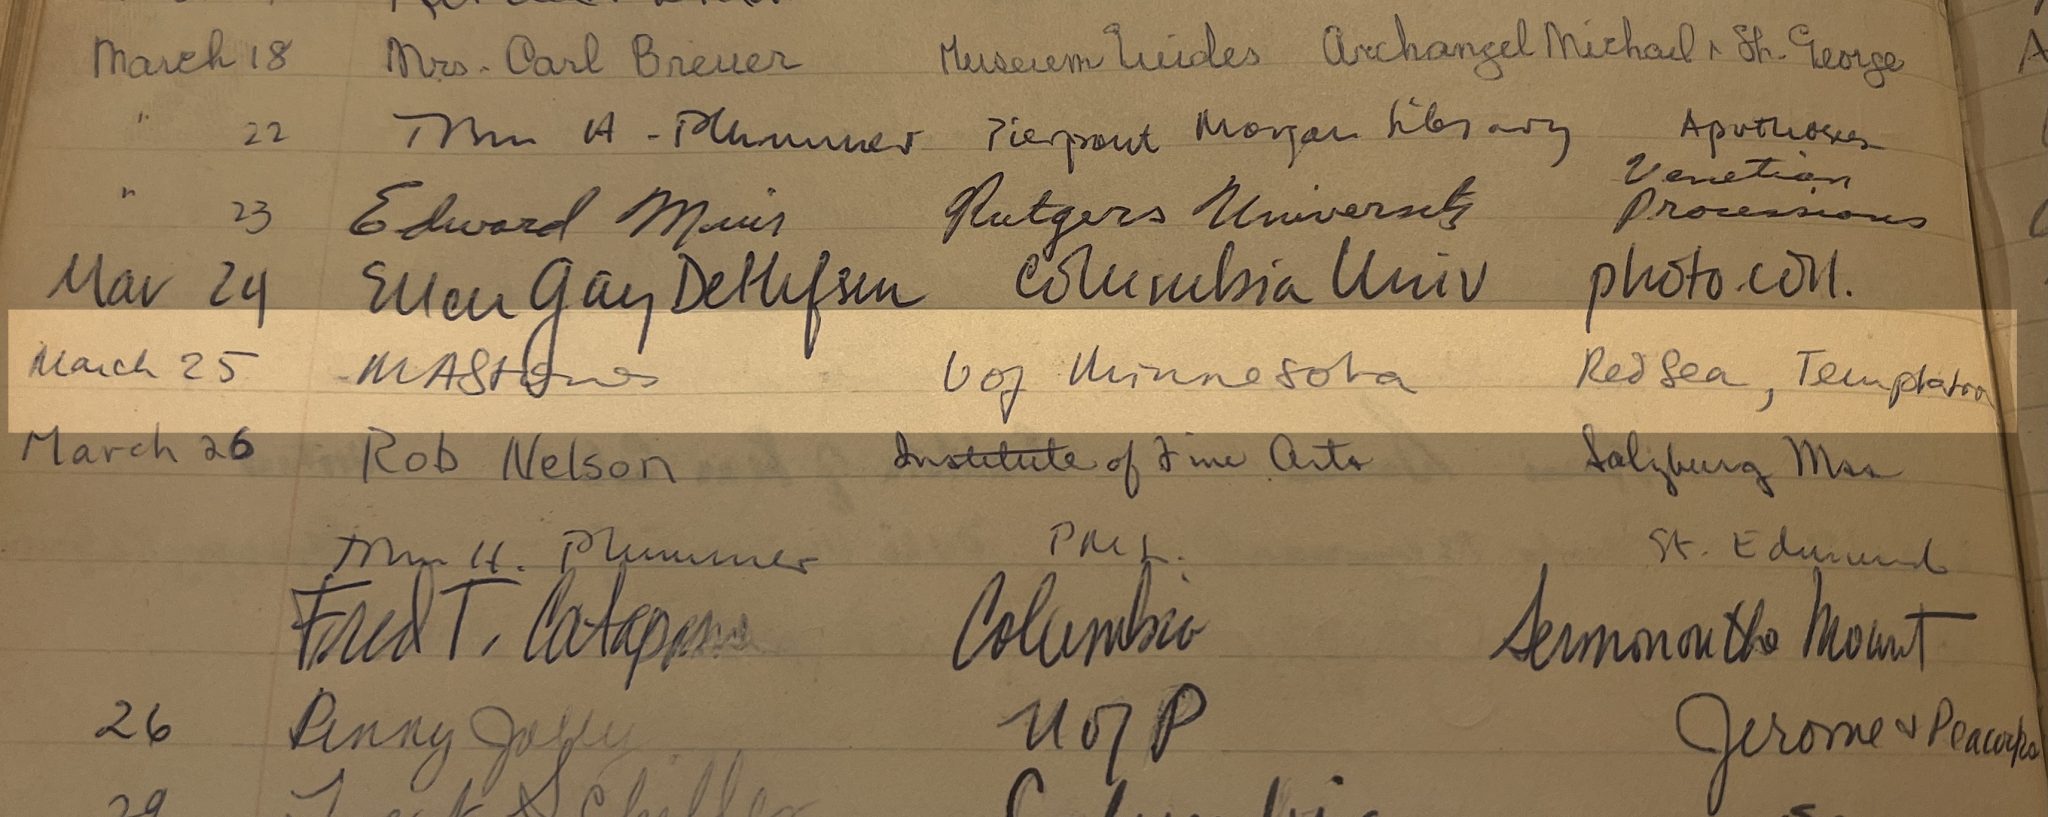 March 18 Mrs. Carl Breuer Museum Guides Archangel Michael + St. George
" 22 H. Plummer Pierpont Morgan Library Apotheoses
" 23 Edward Muir Rutgers University Venetian Processions
Mar 24 Ellen Gay Detlefsen Columbia Univ photo coll.
March 25 MAStones U of Minnesota Red Sea, Temptation
March 26 Rob Nelson Institute of Fine Arts Salzburg Mss
H. Plummer PML. St. Edmund
Fred T. Columbia Sermon on the Mount
26 Penny Jolly U of P Jerome + Peacocks
29 Schiller Columbia